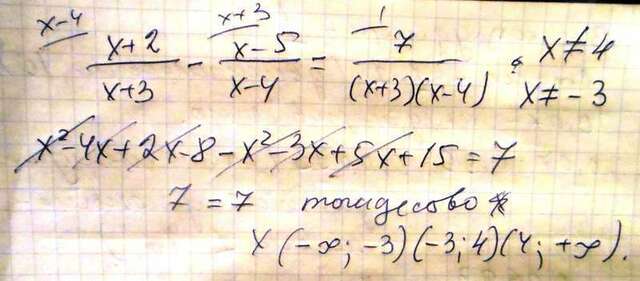 x-4 x+3 1
x+2/x+3 - x-5/x-4 = 7/(x+3)(x-4) , x≠4
x≠-3
x²-4x+2x-8-x²-3x+5x+15=7
7=7 тождесово
x(-∞;-3)(-3;4)(4;+∞).